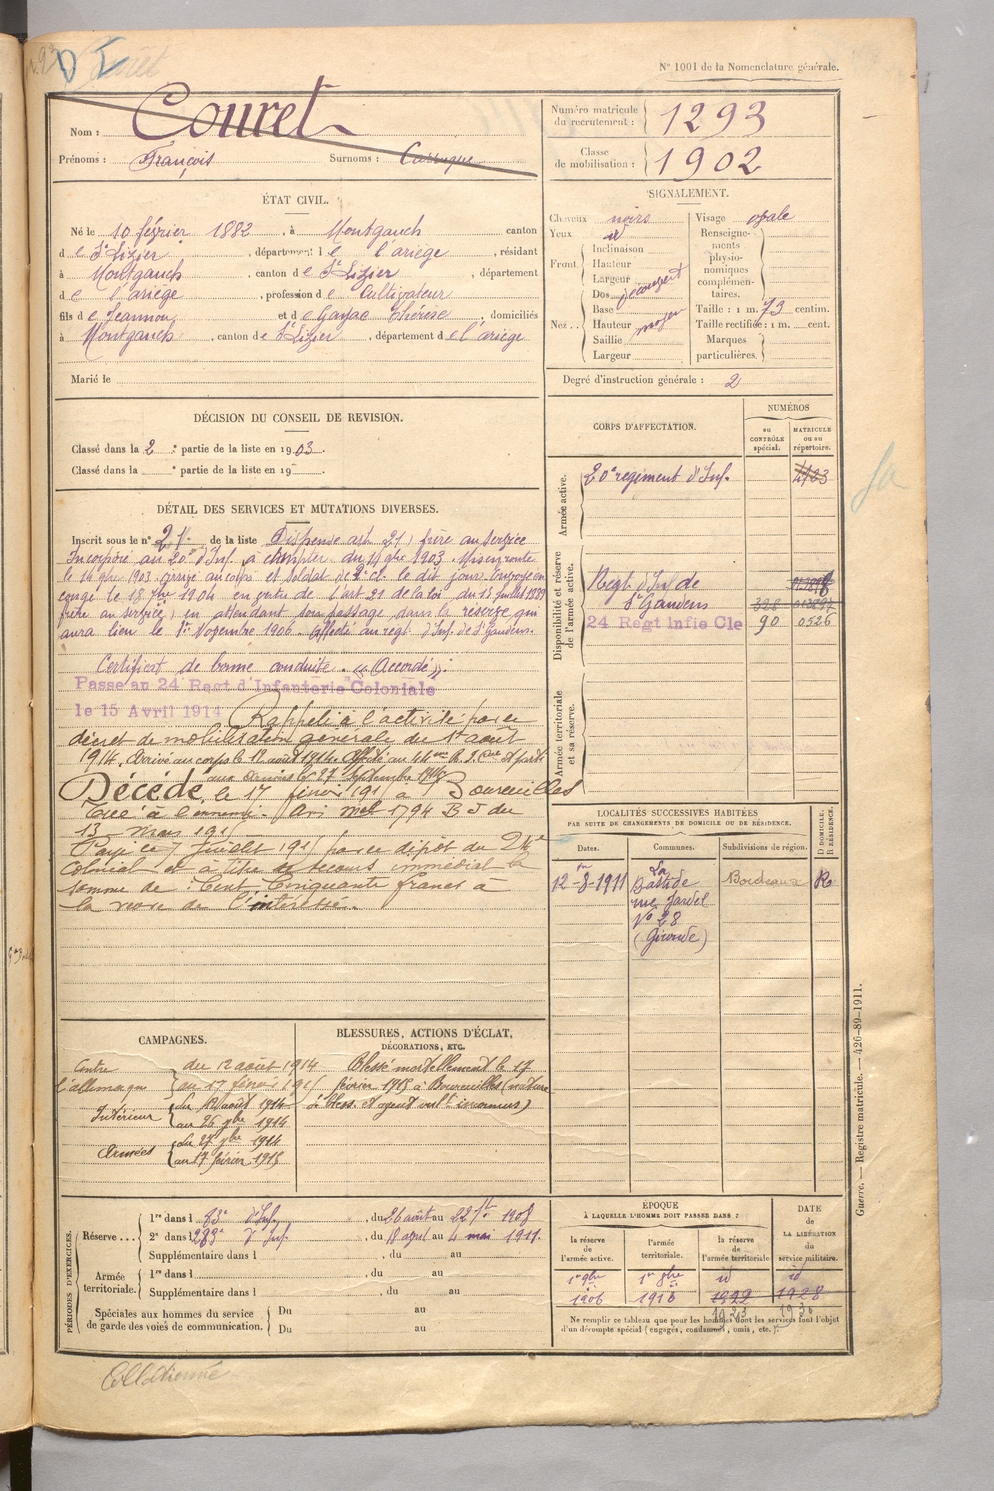 N° 1001 de la Nomenclature générale.
D I
Nom : Couret
Prénoms : François Surnoms :
Numéro matricule du recrutement : 1293
Classe de mobilisation : 1902
ÉTAT CIVIL.
Né le 10 février 1882, à Montgauch canton
de St Lizier, département de l'ariège, résidant
à Montgauch, canton de St Lizier, département
de l'ariège, profession de Cultivateur
fils de Jeannou et de Gayac Thérèse, domiciliés
à Montgauch, canton de St Lizier, département de l'ariège
Marié le
SIGNALEMENT.
Cheveux noirs
Yeux id
Front Inclinaison
Hauteur
Largeur
Nez Dos
Base découvert
Hauteur moyen
Saillie
Largeur
Visage ovale
Renseignements physionomiques complémentaires.
Taille : 1 m. 73 centim.
Taille rectifiée : 1 m. cent.
Marques particulières.
Degré d'instruction générale : 2
DÉCISION DU CONSEIL DE REVISION.
Classé dans la 2 e partie de la liste en 1903.
Classé dans la e partie de la liste en 19
DÉTAIL DES SERVICES ET MUTATIONS DIVERSES.
Inscrit sous le n° 21 de la liste Dispensé art. 21, frère au service
Incorporé au 20e d'Inf. à compter du 14 9bre 1903. Mis en route
le 14 9bre 1903 arrivé au corps et soldat de 2e cl. le dit jour. Envoyé en
congé le 18 7bre 1904 en vertu de l'art 21 de la loi du 15 juillet 1889
frère au service, en attendant son passage dans la réserve qui
aura lieu le 1er Novembre 1906. Affecté au regt d'Inf. de St Gaudens.
Certificat de bonne conduite. "Accordé"
Passé au 24 Regt d'Infanterie Coloniale
le 15 Avril 1914 Rappelé à l'activité par ce
décret de mobilisation générale du 1er août
1914. Arrivé au corps le 12 août 1914. Affecté au 44me R. I. Cale et parti
aux armées le 27 septembre 1914
Décédé, le 17 février 191 à Boureuilles
Tué à l'ennemi. Avis Mel 1794 B J du
13 mars 191
Payé ce 7 juillet 191 par ce dépôt du 24e
Colonial et à titre de secours immédiat la
somme de : Cent Cinquante francs à
la veuve de l'intéressé.
CORPS D'AFFECTATION.
NUMÉROS
au CONTRÔLE spécial.
MATRICULE ou au répertoire.
Armée active.
20e régiment d'Inf. 4123
Disponibilité et réserve de l'armée active.
Regt d'Inf de
St Gaudens 328
24 Regt Infie Cle 90 0526
Armée territoriale et sa réserve.
LOCALITÉS SUCCESSIVES HABITÉES
PAR SUITE DE CHANGEMENTS DE DOMICILE OU DE RÉSIDENCE.
Dates. Communes. Subdivisions de région. D DOMICILE, R RÉSIDENCE.
12-8-1911 La Bastide Bordeaux R
rue Jardel
N° 28
(Gironde)
CAMPAGNES.
Contre l'allemagne du 12 août 1914
au 17 février 191
Intérieur du 12 août 1914
au 26 7bre 1914
Armées du 27 7bre 1914
au 17 février 1915
BLESSURES, ACTIONS D'ÉCLAT,
DÉCORATIONS, ETC.
Blessé mortellement le 17
février 1915 à Boureuilles (nature
de bless. et agent vulnt inconnus)
PÉRIODES D'EXERCICES.
Réserve ... 1re dans l 83e d'Inf. , du 26 août au 22 7bre 1908
2e dans l 283e d'Inf. , du 18 avril au 4 mai 1911.
Supplémentaire dans l , du au
Armée territoriale. 1re dans l , du au
Supplémentaire dans l , du au
Spéciales aux hommes du service de garde des voies de communication. Du au
Du au
ÉPOQUE
À LAQUELLE L'HOMME DOIT PASSER DANS :
la réserve de l'armée active. l'armée territoriale. la réserve de l'armée territoriale
DATE de LA LIBÉRATION du service militaire.
1er 9bre 1906
1er 8bre
id 1922
id 1928
Ne remplir ce tableau que pour les hommes dont les services font l'objet
d'un décompte spécial (engagés, condamnés, omis, etc.).
Guerre. — Registre matricule. — 426-89-1911.
Collationné